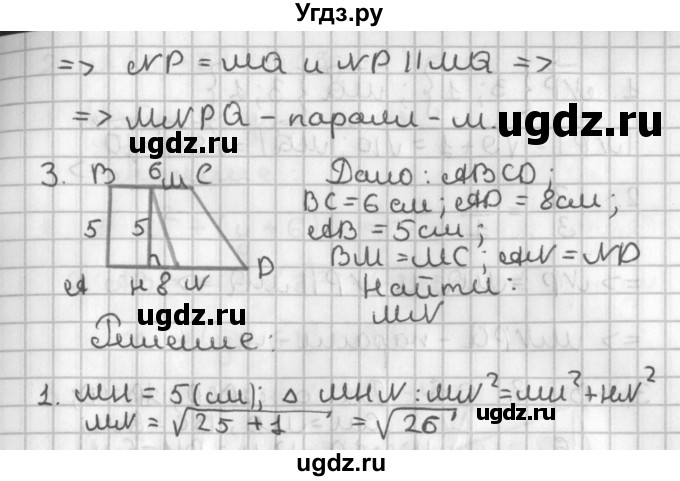 Угдз.ру
=> NP = MQ и NP || MQ =>
=> MNPQ - паралл-м.
ugdz.ru ugdz.ru
3. B 6 M C Дано: ABCD;
BC = 6 см; AD = 8 см;
5 5 AB = 5 см;
D BM = MC; AN = ND
A H 8 N Найти:
ugdz.ru ugdz.ru
MN
Решение:
1. MH = 5 (см); △ MHN: MN² = MH² + HN²
MN = √25 + 1 = √26
ugdz.ru
ugdz.ru